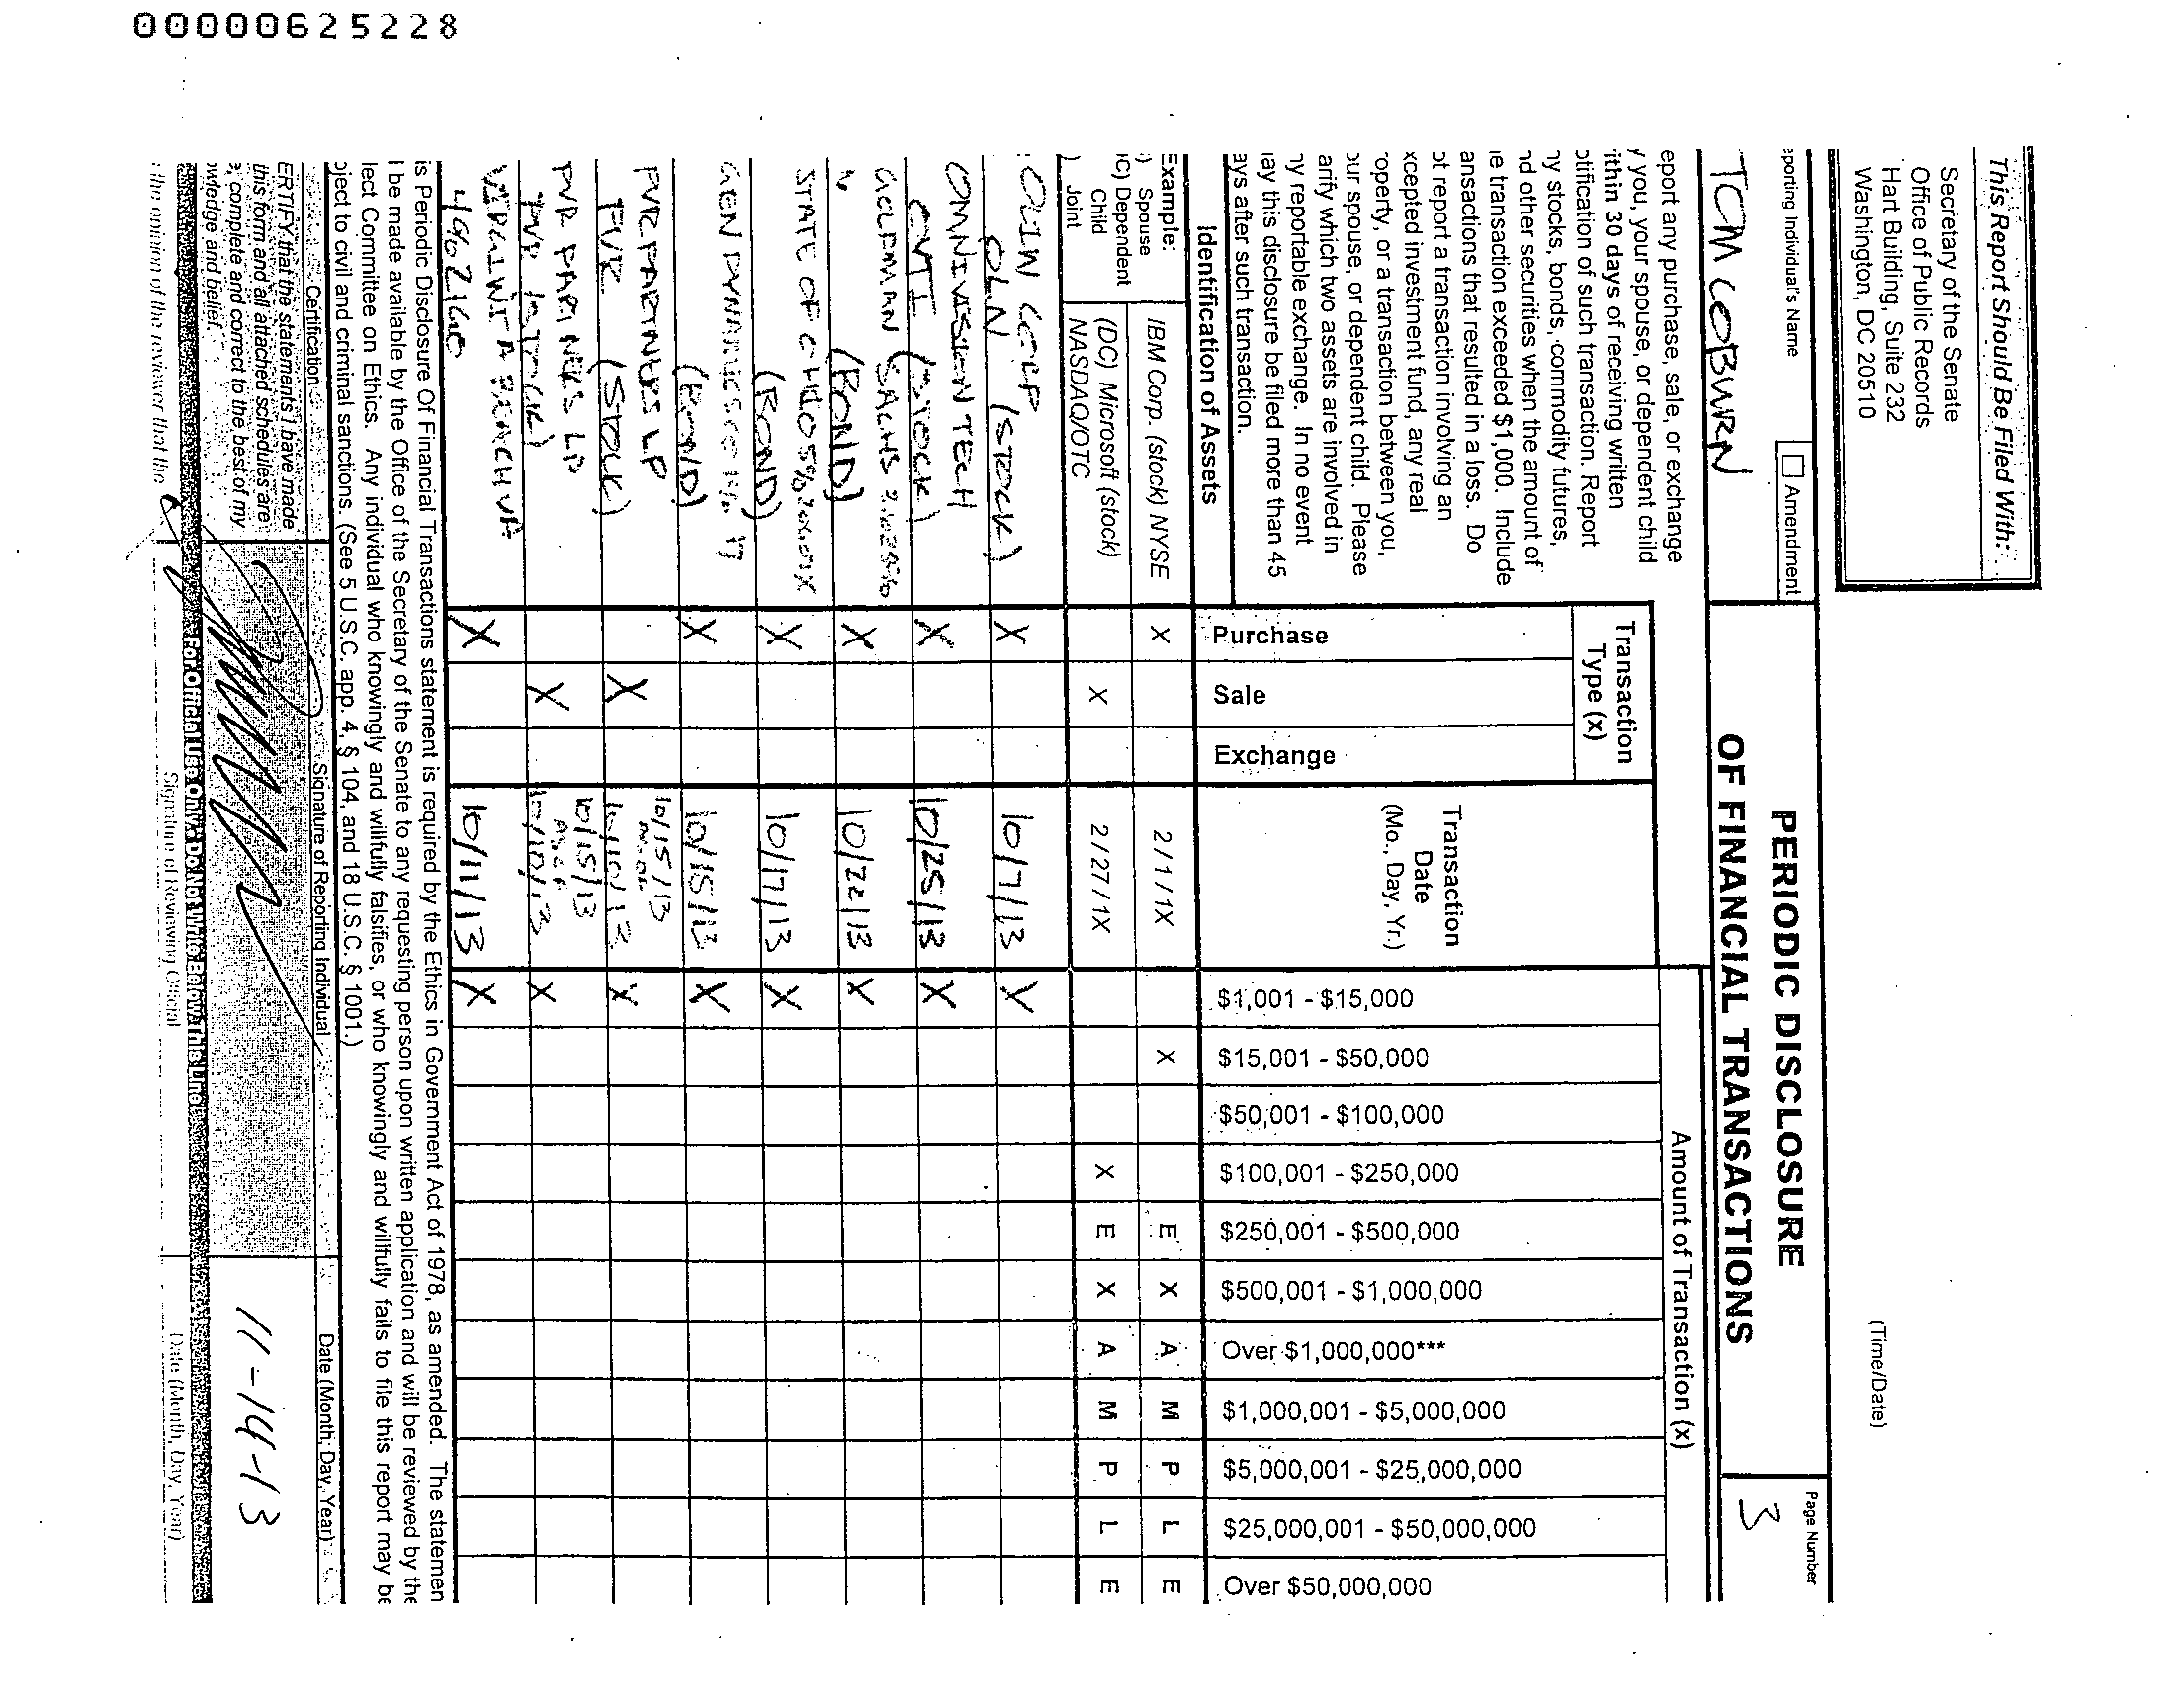 00000625228
This Report Should Be Filed With:
Secretary of the Senate
Office of Public Records
Hart Building, Suite 232
Washington, DC 20510
(Time/Date)
eporting Individual's Name
Amendment
TOM COBURN
PERIODIC DISCLOSURE
OF FINANCIAL TRANSACTIONS
Page Number
3
eport any purchase, sale, or exchange
y you, your spouse, or dependent child
ithin 30 days of receiving written
otification of such transaction. Report
ny stocks, bonds, commodity futures,
nd other securities when the amount of
e transaction exceeded $1,000. Include
ansactions that resulted in a loss. Do
ot report a transaction involving an
xcepted investment fund, any real
roperty, or a transaction between you,
our spouse, or dependent child. Please
arify which two assets are involved in
ny reportable exchange. In no event
nay this disclosure be filed more than 45
ays after such transaction.
Identification of Assets
Transaction
Type (x)
Purchase
Sale
Exchange
Transaction
Date
(Mo., Day, Yr.)
Amount of Transaction (x)
$1,001 - $15,000
$15,001 - $50,000
$50,001 - $100,000
$100,001 - $250,000
$250,001 - $500,000
$500,001 - $1,000,000
Over $1,000,000***
$1,000,001 - $5,000,000
$5,000,001 - $25,000,000
$25,000,001 - $50,000,000
Over $50,000,000
Example:
) Spouse
C) Dependent
Child
) Joint
IBM Corp. (stock) NYSE X 2/1/1X X E X A M P L E
(DC) Microsoft (stock)
NASDAQ/OTC X 2/27/1X X E X A M P L E
OLIN CORP
OLN (STOCK) X 10/7/13 X
OMNIVISION TECH
(STOCK) X 10/25/13 X
GOLDMAN SACHS
(BOND) X 10/22/13 X
STATE OF OHIO 5%
(BOND) X 10/17/13 X
GEN DYNAMICS
(BOND) X 10/15/13 X
PVR PARTNERS LP
PVR (STOCK) X 10/15/13
10/10/13 X
PVR PARTNERS LP
PVR (STOCK) X 10/15/13
10/10/13 X
VIRGINIA BEACH VA
X 10/11/13 X
is Periodic Disclosure Of Financial Transactions statement is required by the Ethics in Government Act of 1978, as amended. The statemen
l be made available by the Office of the Secretary of the Senate to any requesting person upon written application and will be reviewed by the
lect Committee on Ethics. Any individual who knowingly and willfully falsifies, or who knowingly and willfully fails to file this report may be
oject to civil and criminal sanctions. (See 5 U.S.C. app. 4, § 104, and 18 U.S.C. § 1001.)
Certification
Signature of Reporting Individual
Date (Month, Day, Year)
ERTIFY that the statements I have made
this form and all attached schedules are
e, complete and correct to the best of my
owledge and belief.
11-14-13
For Official Use Only - Do Not Write Below This Line
the opinion of the reviewer that the
Signature of Reviewing Official
Date (Month, Day, Year)